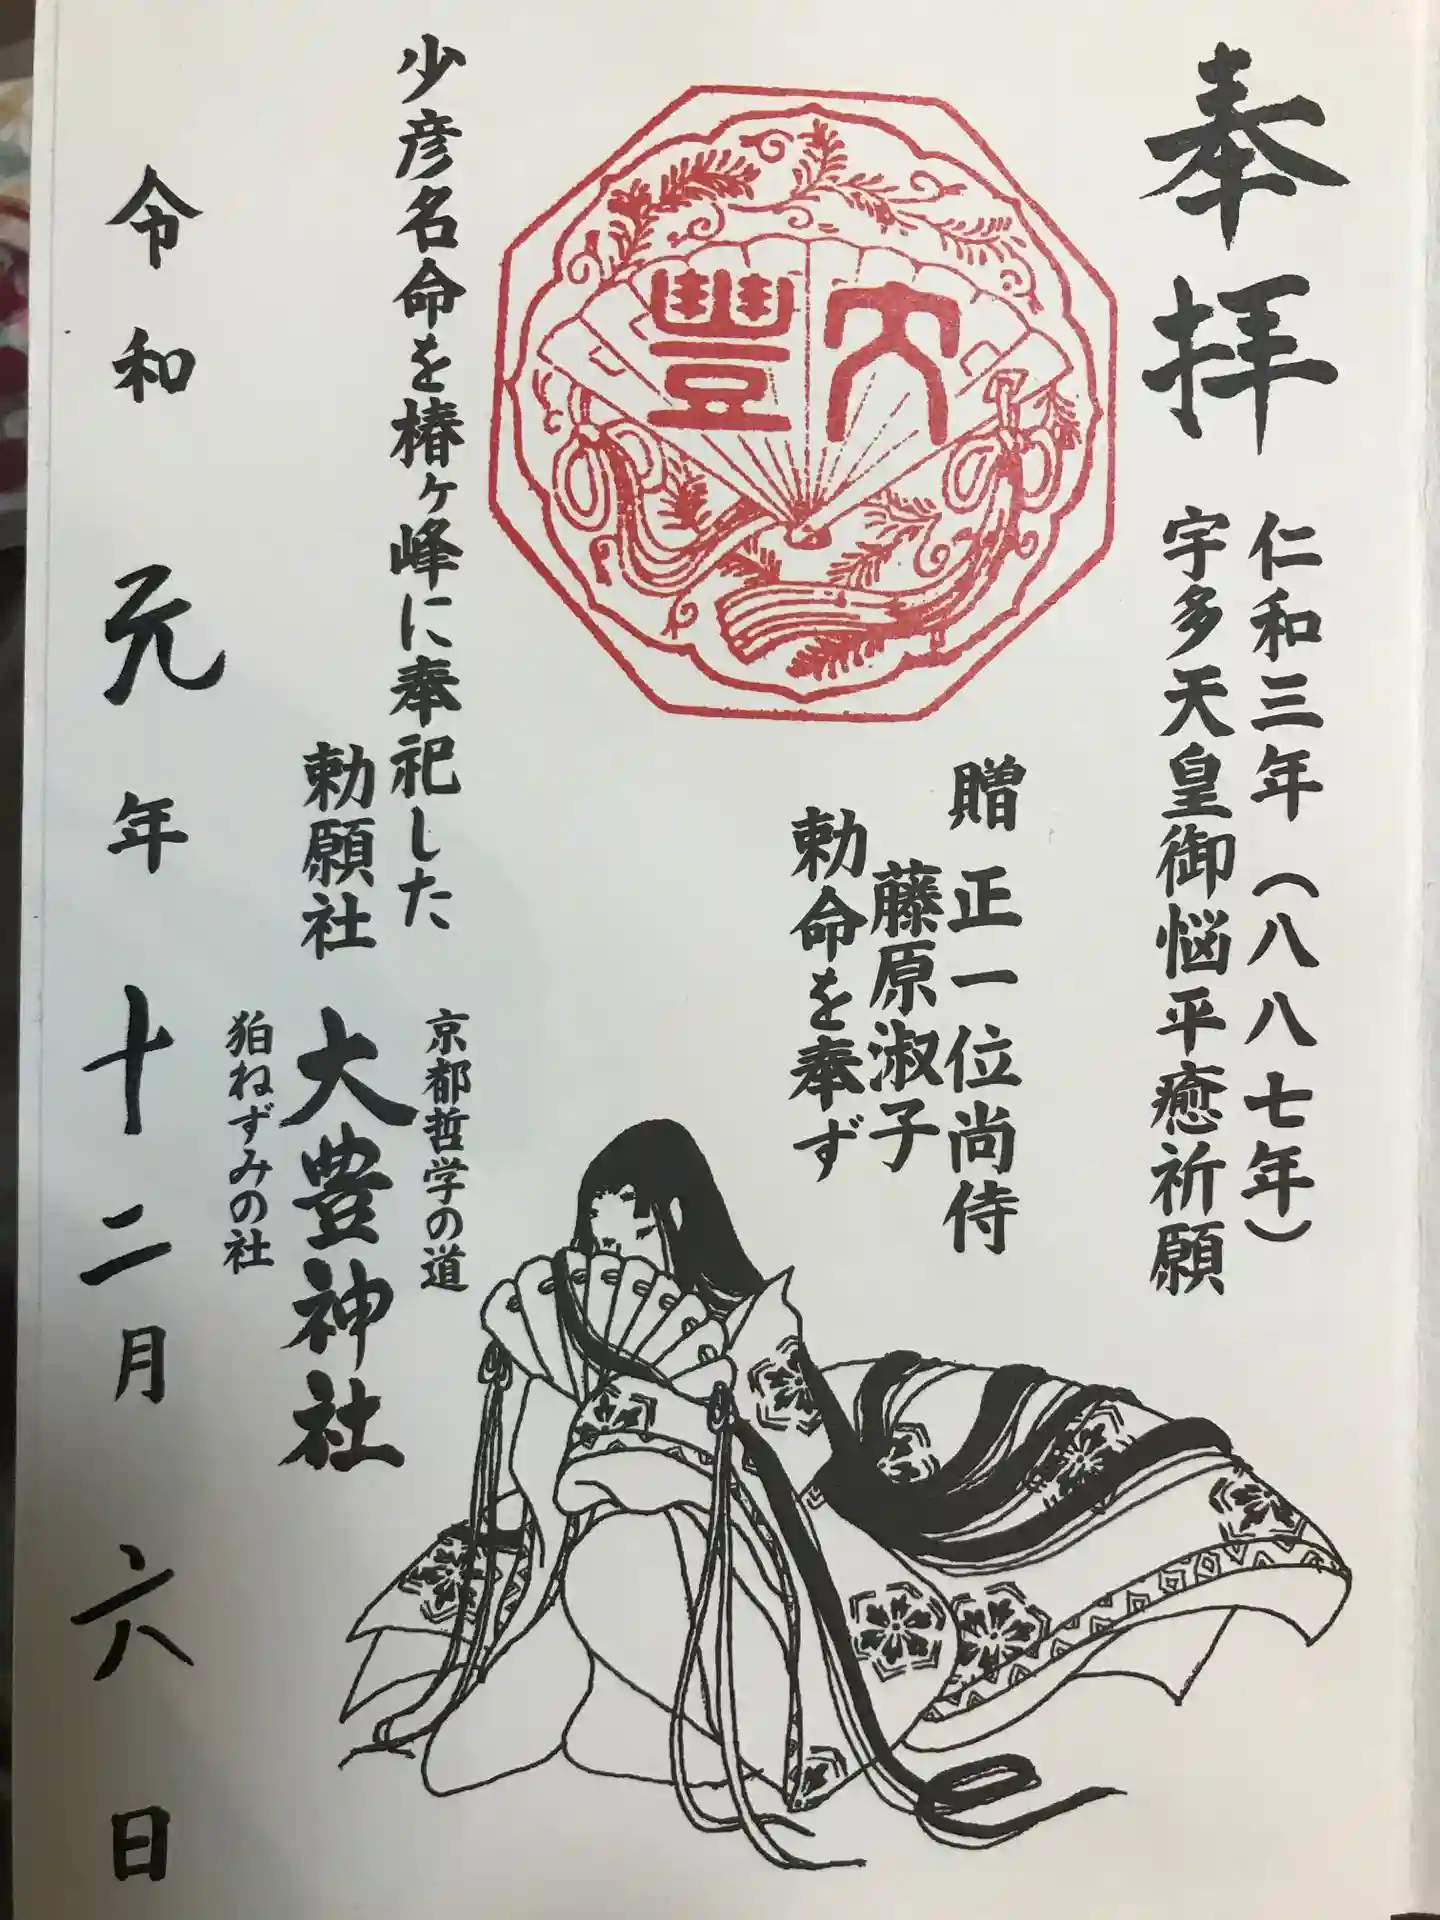 奉拝
仁和三年(八八七年)
宇多天皇御悩平癒祈願
大豐
贈 正一位尚侍
藤原淑子
勅命を奉ず
少彦名命を椿ヶ峰に奉祀した
勅願社
京都哲学の道
大豊神社
狛ねずみの社
令和元年十二月六日